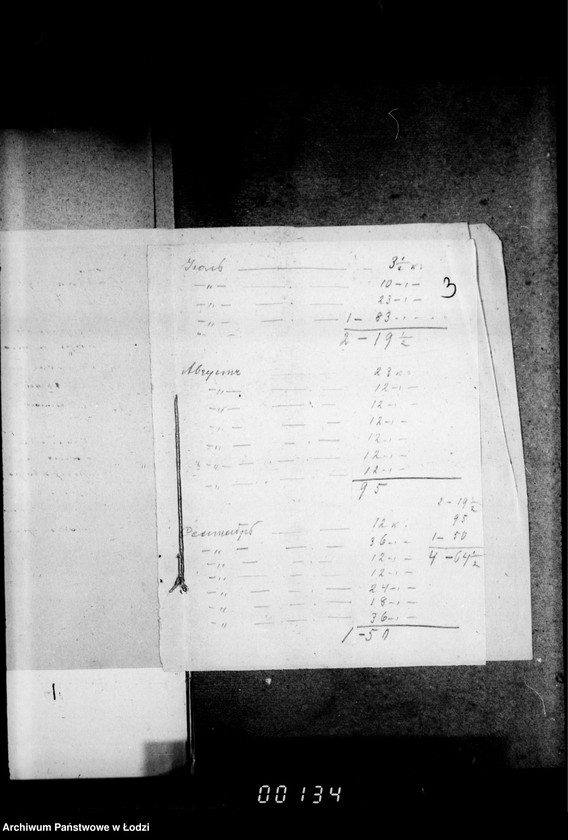 Июль — — — 3 1/2 к.
— „ — — — — 10 — „ —
— „ — — — — 23 — „ —
— „ — — — — 1 — 83 — „ —
2 — 19 1/2
3
Августъ — — — 23 к.
— „ — — — — 12 — „ —
— „ — — — — 12 — „ —
— „ — — — — 12 — „ —
— „ — — — — 12 — „ —
— „ — — — — 12 — „ —
— „ — — — — 12 — „ —
95
Сентябрь — — — 12 к.
— „ — — — — 36 — „ —
— „ — — — — 12 — „ —
— „ — — — — 12 — „ —
— „ — — — — 24 — „ —
— „ — — — — 18 — „ —
— „ — — — — 36 — „ —
1 — 50
2 — 19 1/2
95
1 — 50
4 — 64 1/2
1
00134
Archiwum Państwowe w Łodzi